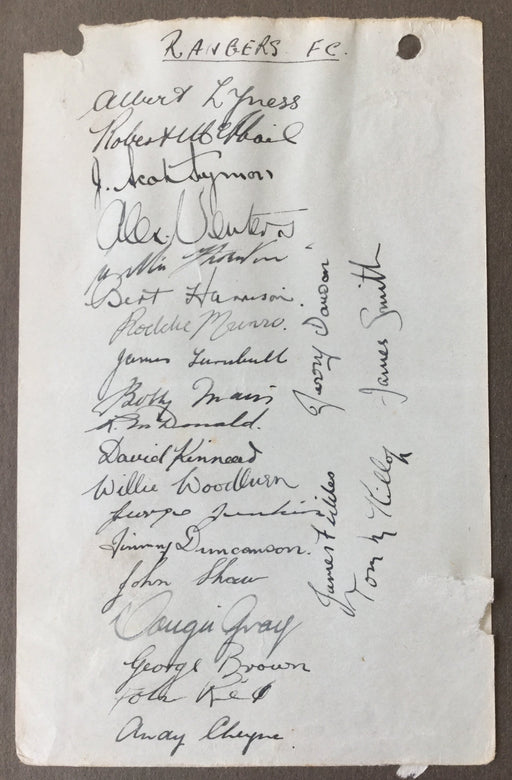 RANGERS FC.
Albert Lyness
Robert McPhail
J. Scot Symon
Alex. Venters
Willie Thornton
Bert Harrison.
Roddie Munro.
James Turnbull
Bobby Main
K. McDonald.
David Kinnear
Willie Woodburn
George Jenkins
Jimmy Duncanson.
John Shaw
Dougie Gray
George Brown
Tom
Andy Cheyne.
Jerry Dawson
James Smith
James Fiddes
Tom McKillop